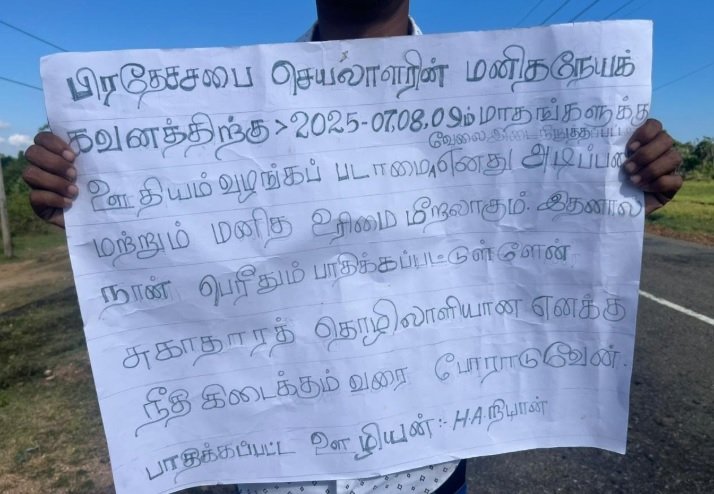 பிரதேச்சபை செயலாளரின் மனிதநேயக்
கவனத்திற்கு > 2025-07,08,09ம் மாதங்களுக்கு
வேலை இடை நிறுத்தப்பட்ட
ஊதியம் வழங்கப் படாமை, எனது அடிப்படை
மற்றும் மனித உரிமை மீறலாகும். இதனால்
நான் பெரிதும் பாதிக்கப்பட்டுள்ளேன்.
சுகாதாரத் தொழிலாளியான எனக்கு
நீதி கிடைக்கும் வரை போராடுவேன்.
பாதிக்கப்பட்ட ஊழியன் :- H.A நியான்